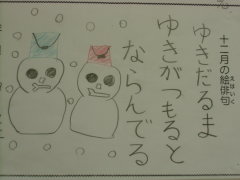 十二月の絵俳句
えはいく
ゆきだるま
ゆきがつもると
ならんでる